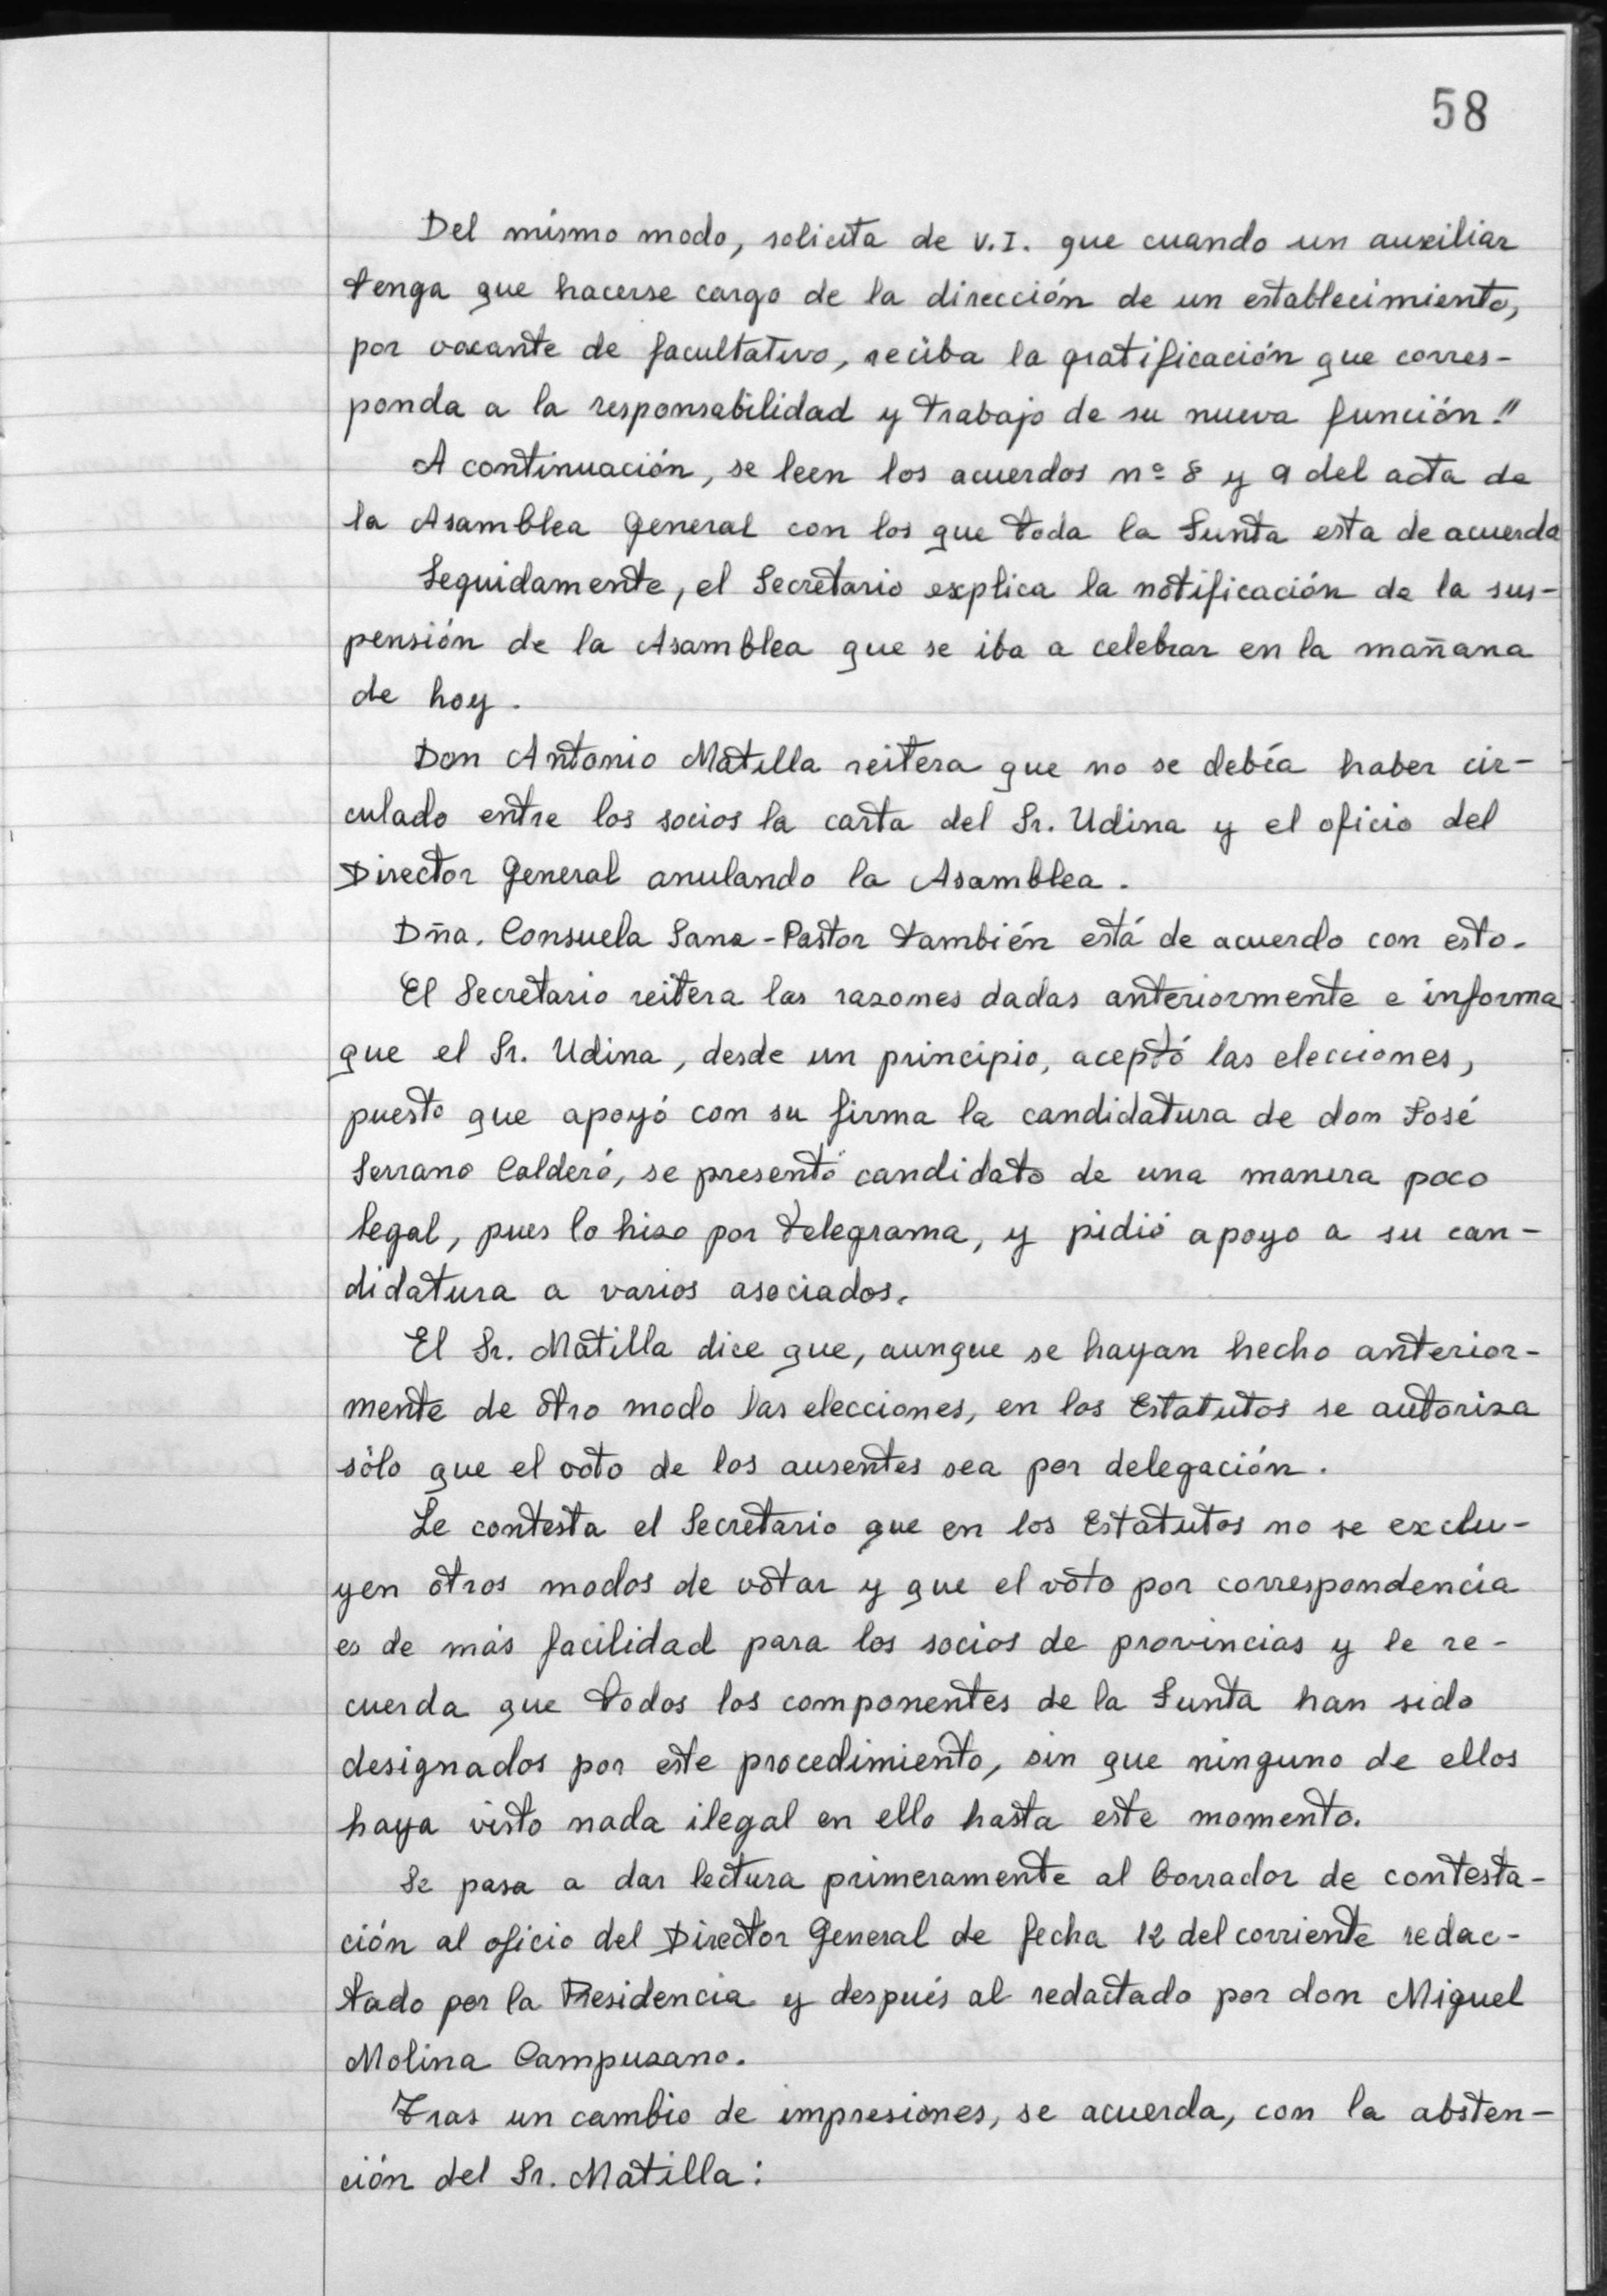 58
Del mismo modo, solicita de V.I. que cuando un auxiliar
tenga que hacerse cargo de la dirección de un establecimiento,
por vacante de facultativo, reciba la gratificación que corres-
ponda a la responsabilidad y trabajo de su nueva función."
A continuación, se leen los acuerdos nº 8 y 9 del acta de
la Asamblea General con los que toda la Junta esta de acuerdo
Seguidamente, el Secretario explica la notificación de la sus-
pensión de la Asamblea que se iba a celebrar en la mañana
de hoy.
Don Antonio Matilla reitera que no se debía haber cir-
culado entre los socios la carta del Sr. Udina y el oficio del
Director General anulando la Asamblea.
Dña. Consuela Sanz-Pastor también está de acuerdo con esto.
El Secretario reitera las razones dadas anteriormente e informa
que el Sr. Udina, desde un principio, aceptó las elecciones,
puesto que apoyó con su firma la candidatura de don José
Serrano Calderó, se presentó candidato de una manera poco
legal, pues lo hizo por telegrama, y pidió apoyo a su can-
didatura a varios asociados.
El Sr. Matilla dice que, aunque se hayan hecho anterior-
mente de otro modo las elecciones, en los Estatutos se autoriza
sólo que el voto de los ausentes sea por delegación.
Le contesta el Secretario que en los Estatutos no se exclu-
yen otros modos de votar y que el voto por correspondencia
es de más facilidad para los socios de provincias y le re-
cuerda que todos los componentes de la Junta han sido
designados por este procedimiento, sin que ninguno de ellos
haya visto nada ilegal en ello hasta este momento.
Se pasa a dar lectura primeramente al borrador de contesta-
ción al oficio del Director General de fecha 12 del corriente redac-
tado por la Presidencia y después al redactado por don Miguel
Molina Campuzano.
Tras un cambio de impresiones, se acuerda, con la absten-
ción del Sr. Matilla: